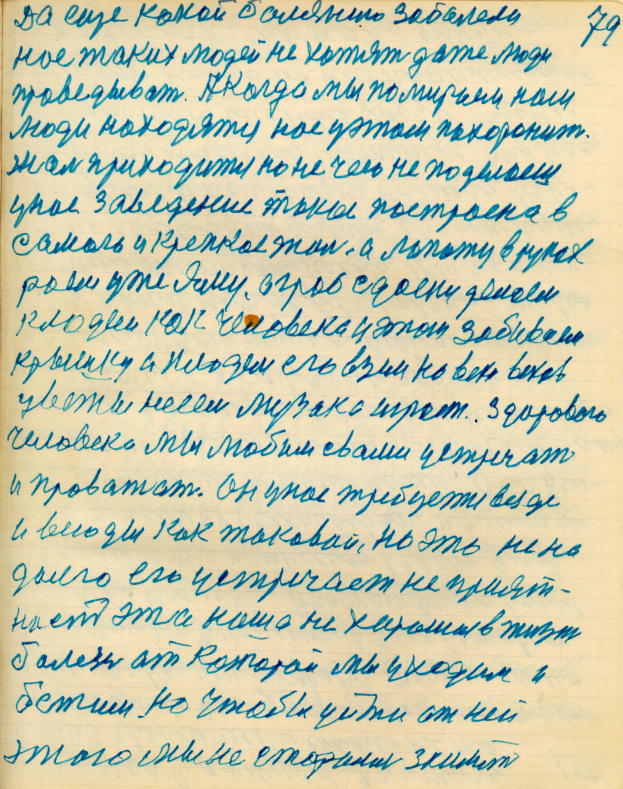 79
Да еще какой болезнию заболели
нас таких людей не хотят даже люди
проведыват. А когда мы помираем наш
люди находятся нас у этом похоронит.
жал приходится но не чего не поделаеш
у нас заведение такое построена в
самого и крепкое
роем уже яму, а гроб с доски делаем
кладем как человека у этом забиваем
крышку и кладем его взем на век веков
цветы несем музака играет. Здорового
человека мы любим сваими устречат
и проважат. Он у нас требуется везде
и всюды как таковой, но это не на
долго его устречает не прият-
ност эта наша не харошая в жизни
болезн от которой мы уходим и
бежим. Но чтобы уйти от ней
этого мы не старались